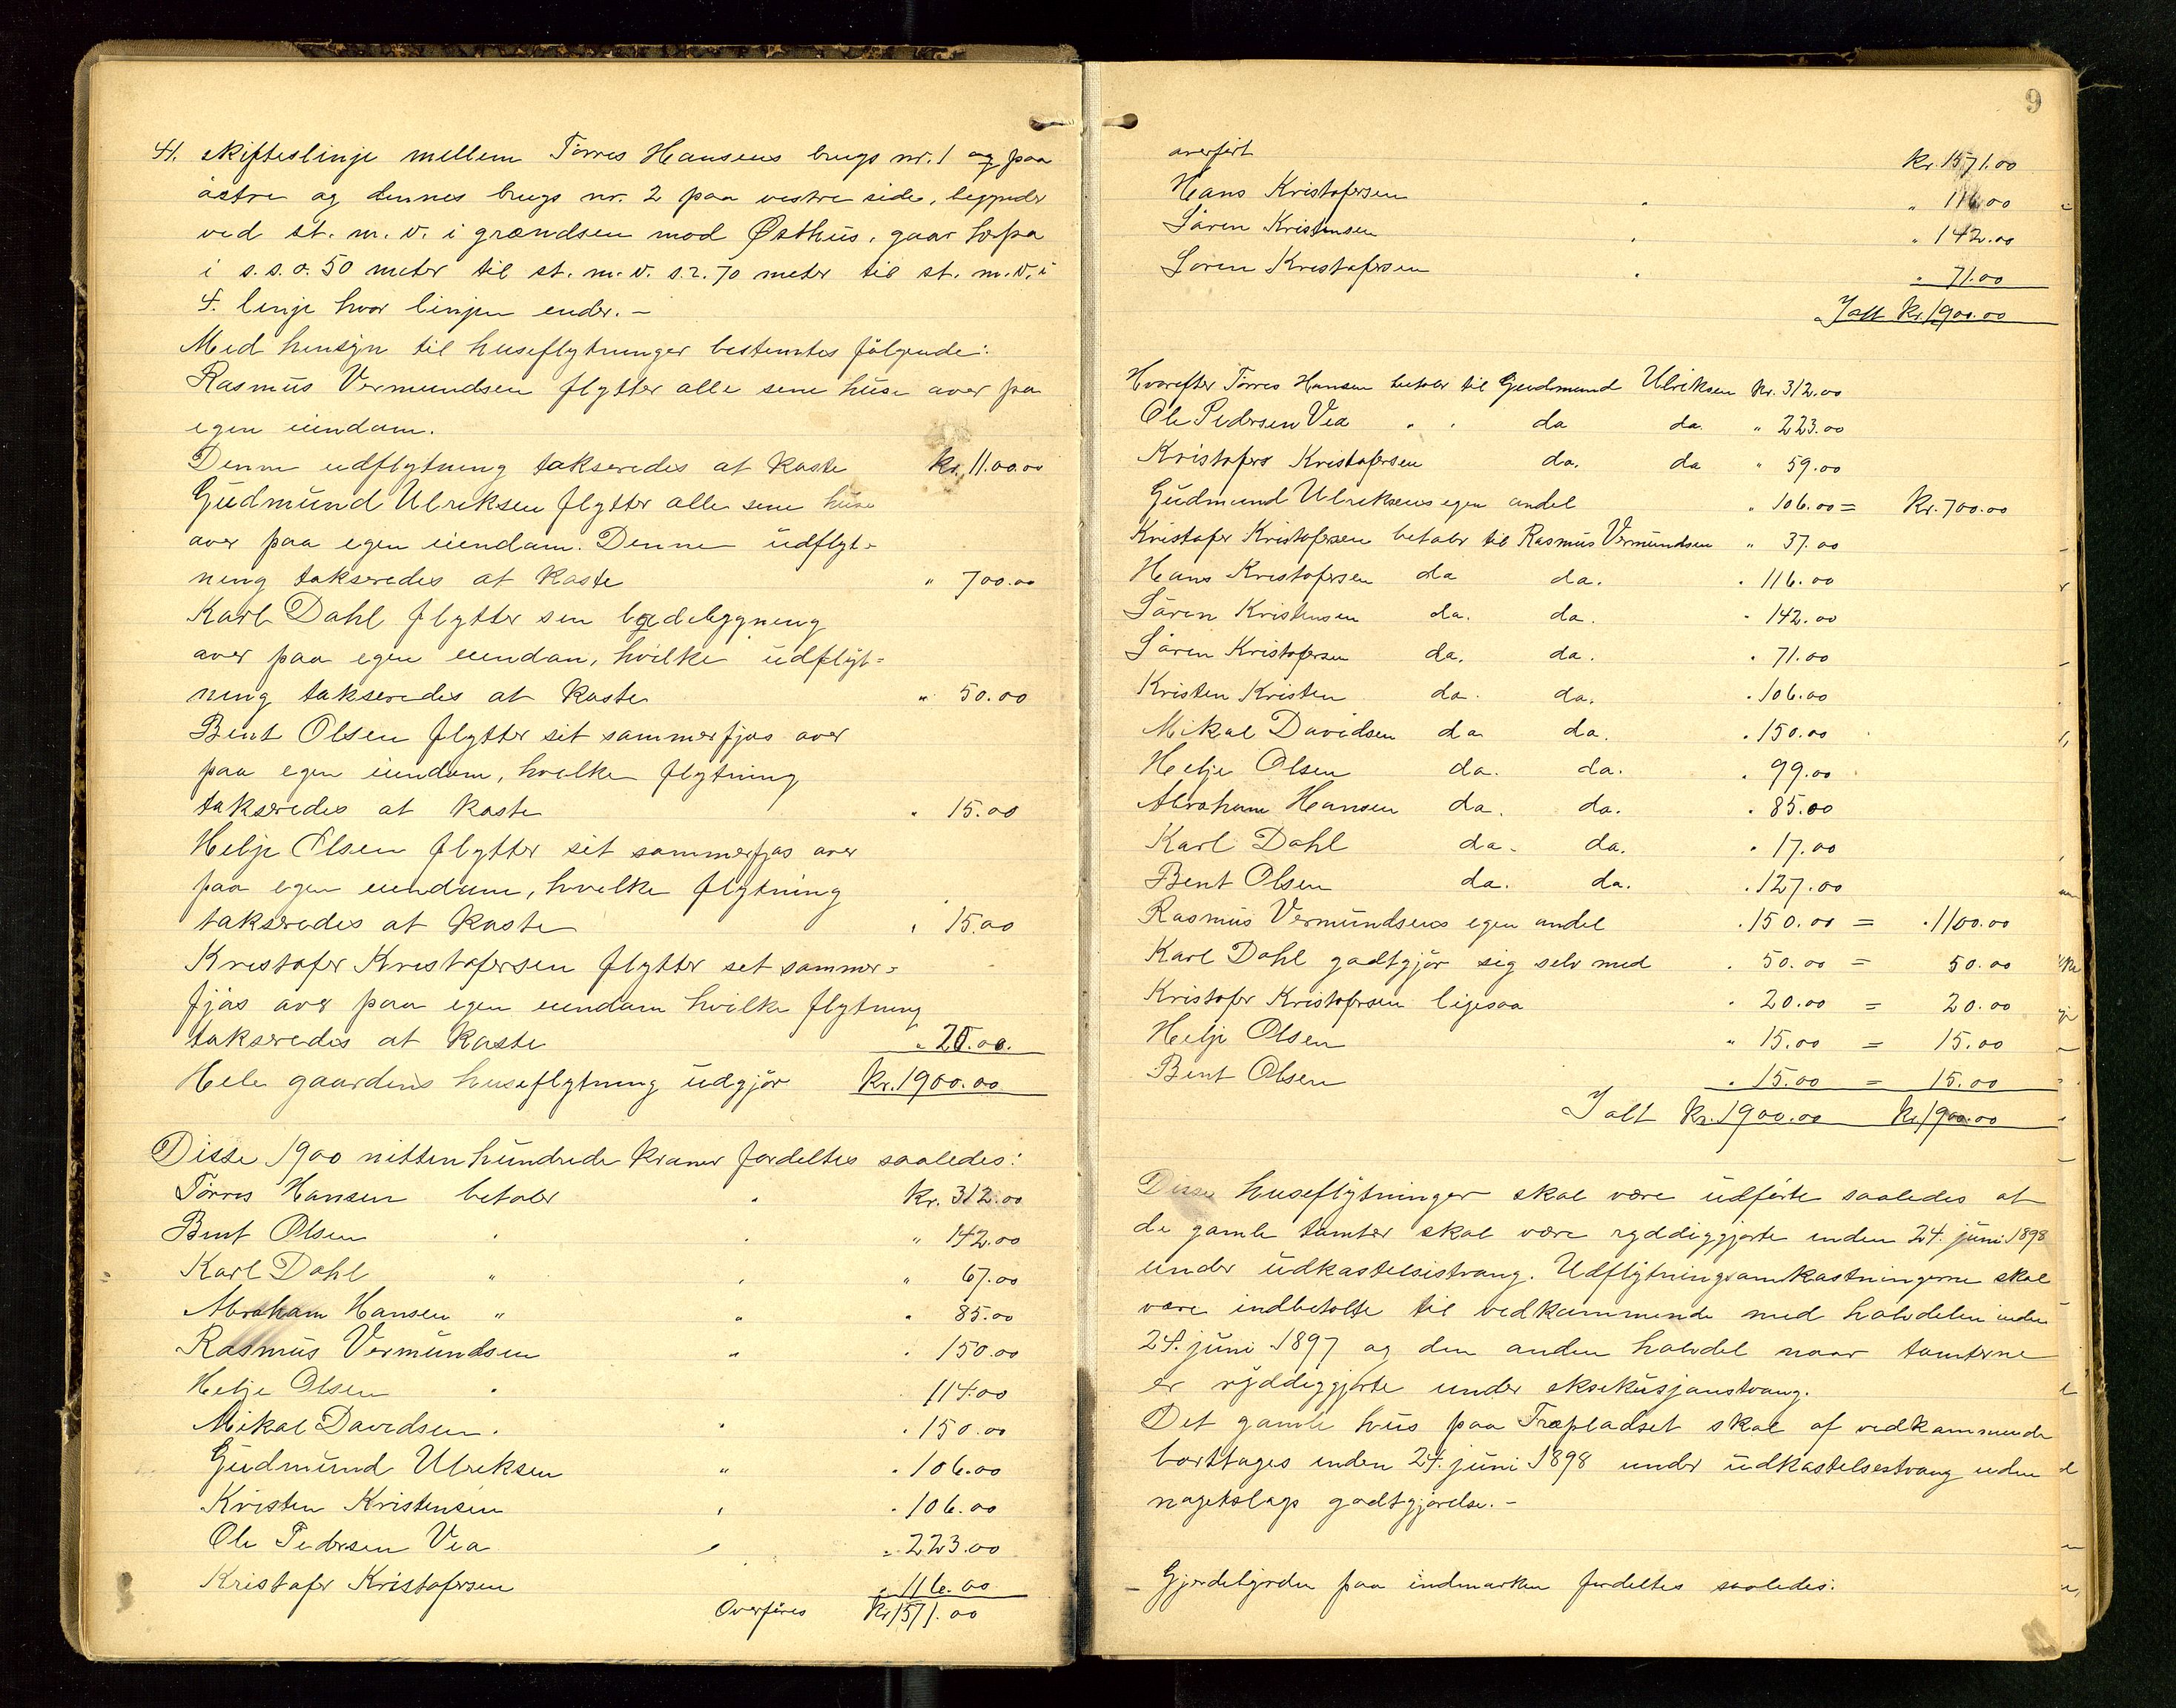 41. skifteslinje mellem Tørres Hansens brugs nr. 1 og paa
østre og dennes brugs nr. 2 paa vestre side, begynder
ved st. m. v. i grændsen mod Østhus, gaar herfra
i s.s.o. 50 meter til st. m. v. s.v. 70 meter til st. m. v. i
4. linje hvor linjen ender. -
Med hensyn til huseflytninger bestemtes følgende:
Rasmus Vermundsen flytter alle sine huse over paa
egen eiendom.
Denne udflytning takseredes at koste kr. 1100.00
Gudmund Ulriksen flytter alle sine huse
over paa egen eiendom. Denne udflyt-
ning takseredes at koste " 700.00
Karl Dahl flytter sin lødebygning
over paa egen eiendom, hvilke udflyt-
ning takseredes at koste " 50.00
Bent Olsen flytter sit sommerfjøs over
paa egen eiendom, hvilke flytning
takseredes at koste " 15.00
Helje Olsen flytter sit sommerfjøs over
paa egen eiendom, hvilke flytning
takseredes at koste " 15.00
Kristofer Kristofersen flytter sit sommer-
fjøs over paa egen eiendom hvilke flytning
takseredes at koste " 20.00.
Hele gaardens huseflytning udgjør kr. 1900.00
Disse 1900 nitten hundrede kroner fordeltes saaledes:
Tørres Hansen betaler " kr. 312.00
Bent Olsen " " " 142.00
Karl Dahl " " " 67.00
Abraham Hansen " " " 85.00
Rasmus Vermundsen " " 150.00
Helje Olsen " 114.00
Mikal Davidsen " " " 150.00
Gudmund Ulriksen " " 106.00
Kristen Kristensen " " 106.00
Ole Pedersen Vea " " 223.00
Kristofer Kristofersen " 116.00
Overføres Kr 1571.00
9
overført kr. 1571.00
Hans Kristofersen " " 116.00
Søren Kristensen " " 142.00
Søren Kristofersen " " 71.00
I alt Kr. 1900.00
Hvorefter Tørres Hansen betaler til Gudmund Ulriksen kr. 312.00
Ole Pedersen Vea " " do do. " 223.00
Kristofers Kristofersen do. do " 59.00
Gudmund Ulriksens egen andel " 106.00 = Kr. 700.00
Kristofer Kristofersen betaler til Rasmus Vermundsen " 37.00
Hans Kristofersen do do. " 116.00
Søren Kristensen do. do. " 142.00
Søren Kristofersen do. do. " 71.00
Kristen Kristen do. do. " 106.00
Mikal Davidsen do do. " 150.00
Helje Olsen do. do. " 99.00
Abraham Hansen do. do. " 85.00
Karl Dahl do. do. " 17.00
Bent Olsen do. do. " 127.00
Rasmus Vermundsens egen andel " 150.00 = " 1100.00
Karl Dahl godtgjør sig selv med " 50.00 = 50.00
Kristofer Kristofersen ligesaa " 20.00 = 20.00
Helje Olsen " 15.00 = 15.00
Bent Olsen " 15.00 = 15.00
I alt Kr. 1900.00 kr. 1900.00
Disse huseflytninger skal være udførte saaledes at
de gamle tomter skal være ryddiggjorte inden 24. juni 1898
under udkastelsistvang. Udflytningsomkostningerne skal
være indbetalte til vedkommende med halvdelen inden
24. juni 1897 og den anden halvdel naar tomterne
er ryddiggjorte under eksekusjonstvang.
Det gamle hus paa Træpladset skal af vedkommende
borttages inden 24. juni 1898 under udkastelsestvang uden
nogetslags godtgjørelse. -
- Gjerdebyrden paa indmarken fordeltes saaledes: